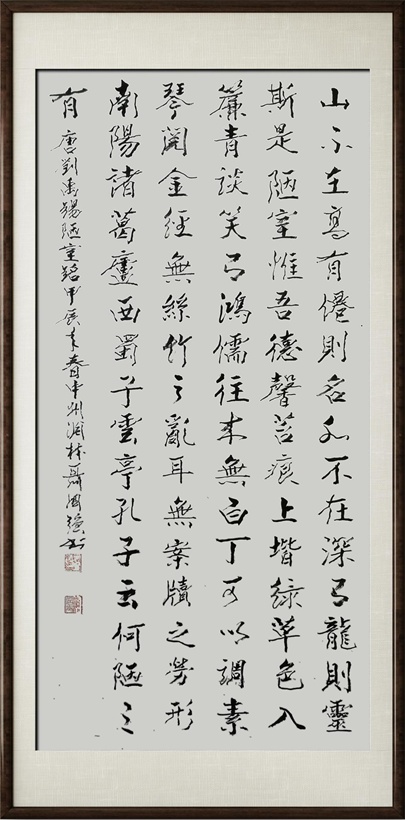 山不在高有僊則名水不在深有龍則靈
斯是陋室惟吾德馨苔痕上堦綠草色入
簾青談笑有鴻儒往來無白丁可以調素
琴閱金經無絲竹之亂耳無案牘之勞形
南陽諸葛廬西蜀子雲亭孔子云何陋之
有 唐劉禹錫陋室銘甲辰年春中州澗林聶國強書